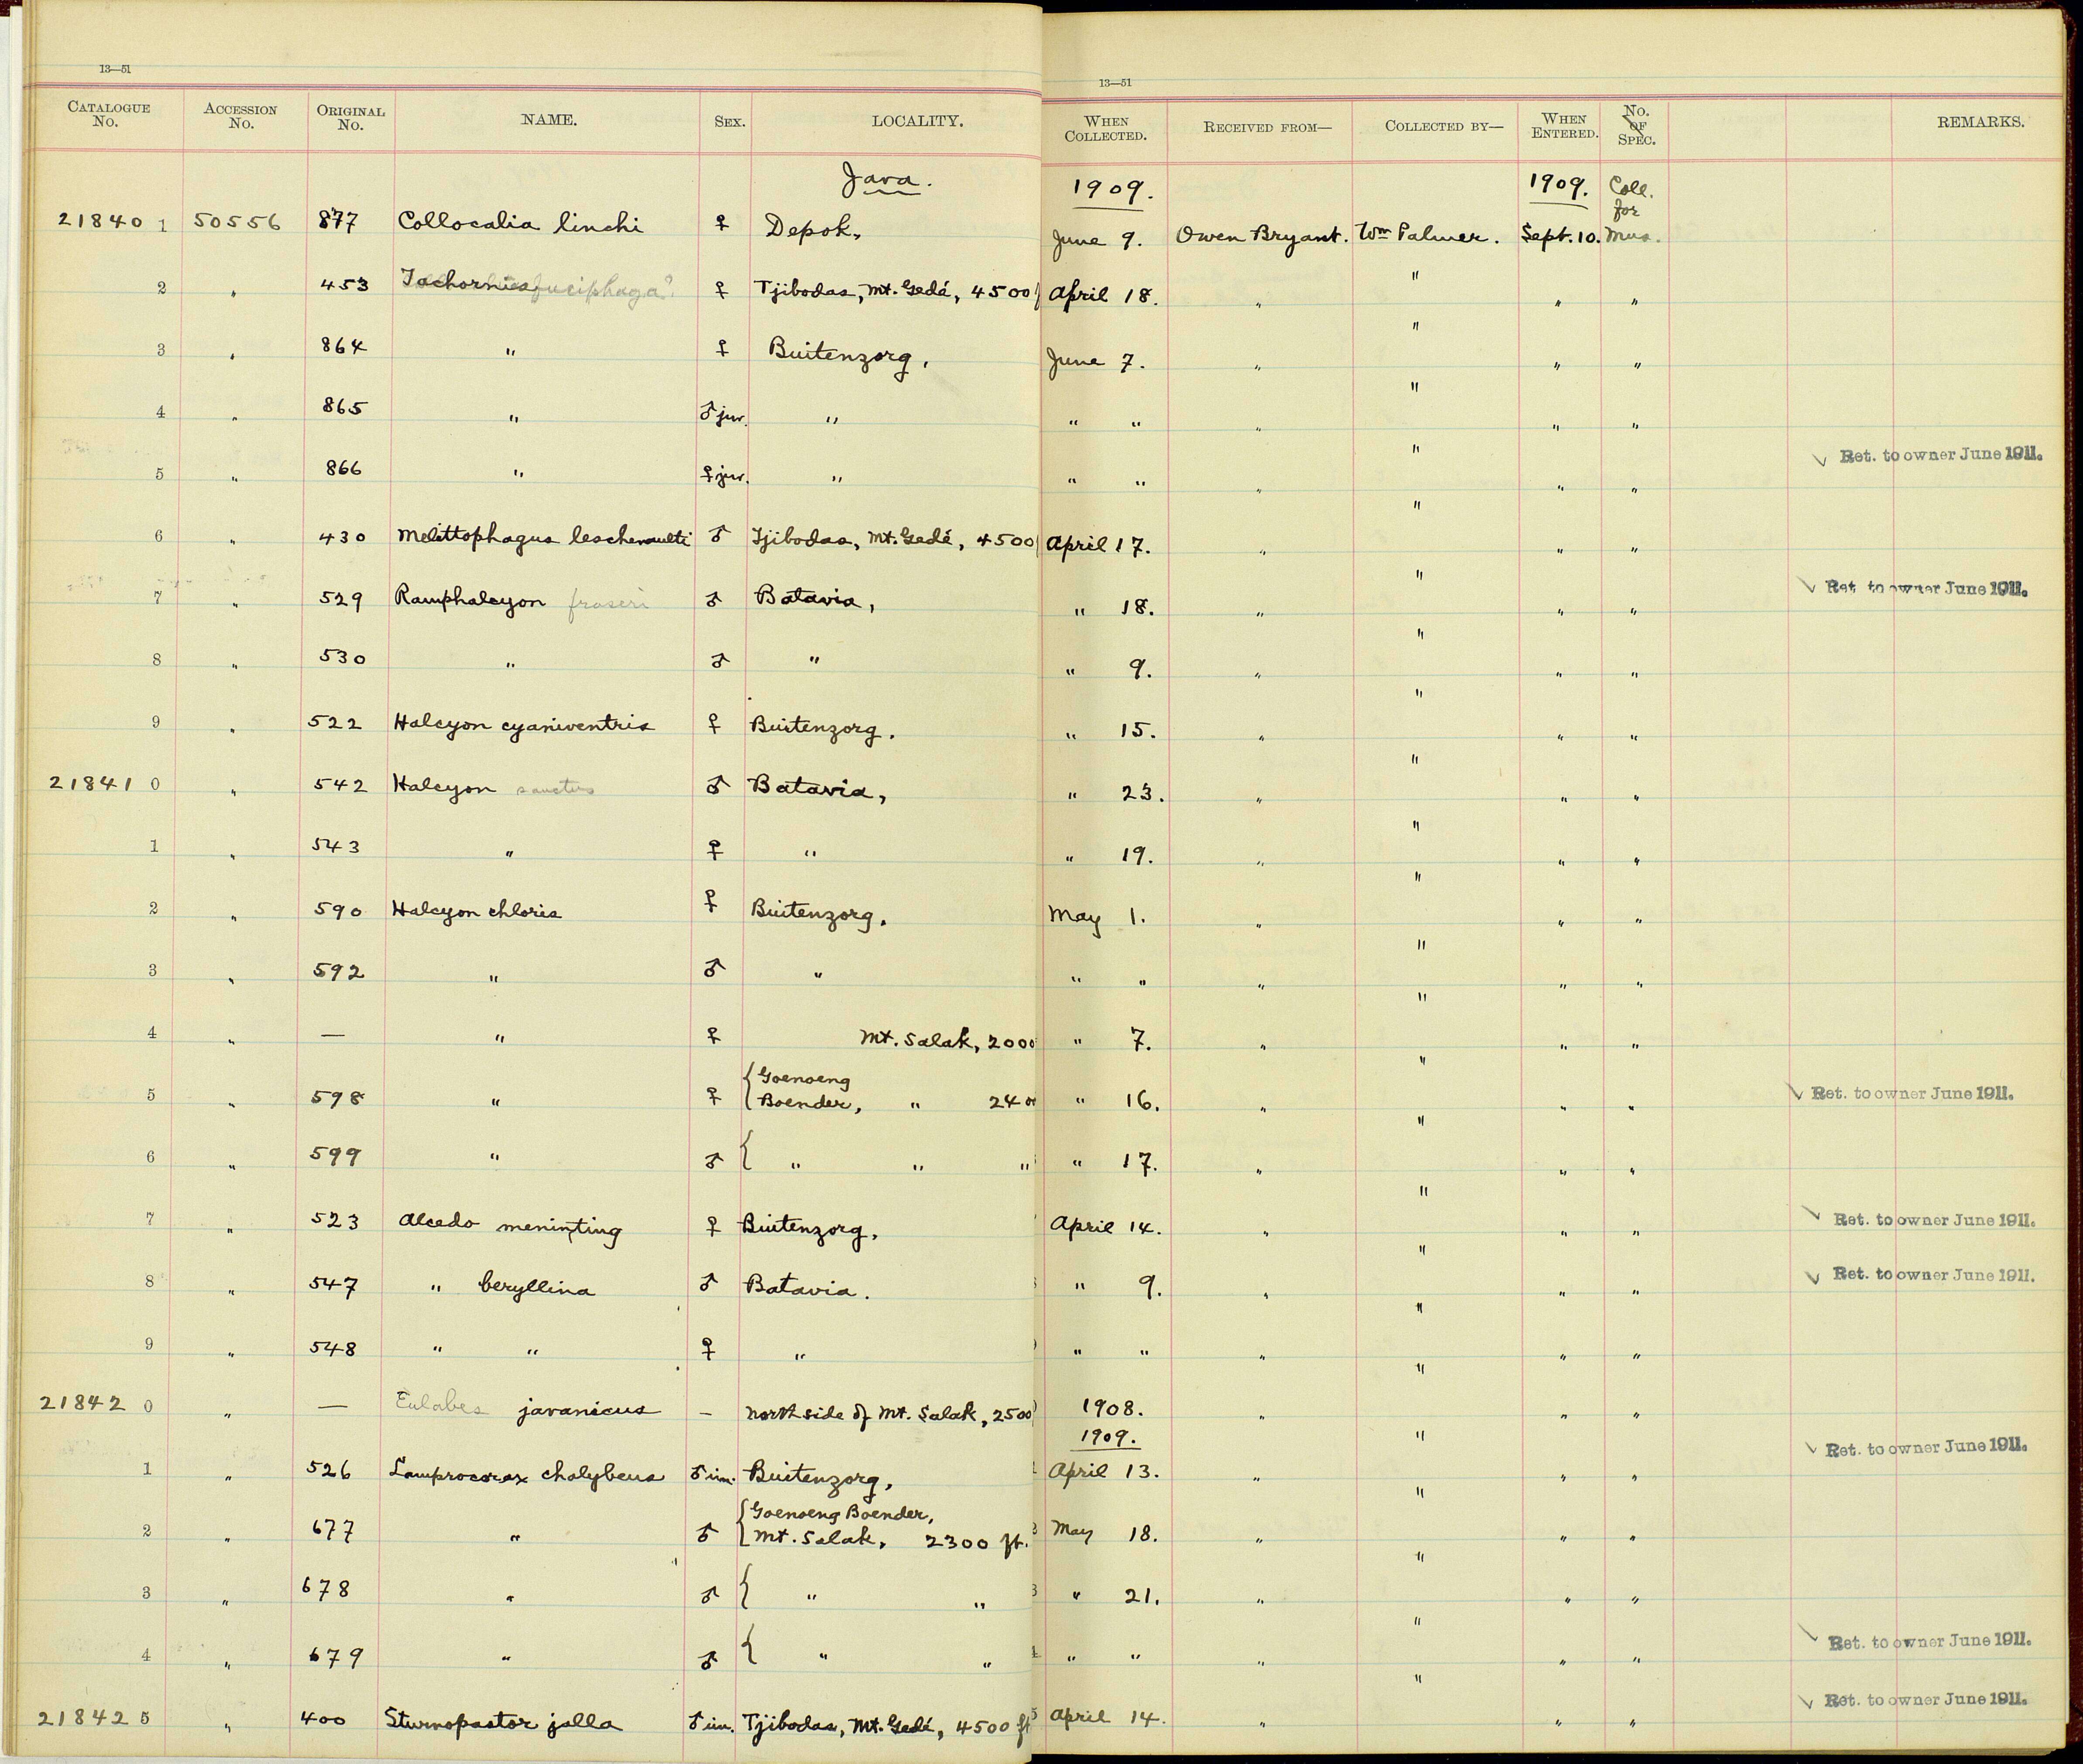 13—51
13—51
CATALOGUE No. ACCESSION No. ORIGINAL No. NAME. SEX. LOCALITY. WHEN COLLECTED. RECEIVED FROM— COLLECTED BY— WHEN ENTERED. No. OF SPEC. REMARKS.
Java. 1909. 1909. Coll. for
218401 50556 877 Collocalia linchi ♀ Depok, June 9. Owen Bryant. Wm Palmer. Sept. 10. Mus.
2 " 453 Tachornis fuciphaga? ♀ Tjibodas, Mt. Gedé, 4500 April 18. " " " "
3 " 864 " ♀ Buitenzorg, June 7. " " " "
4 " 865 " ♂ juv. " " " " " " "
5 " 866 " ♀ juv. " " " " " " " ✓ Ret. to owner June 1911.
6 " 430 Melittophagus leschenaulti ♂ Tjibodas, Mt. Gedé, 4500 April 17. " " " "
7 " 529 Ramphalcyon fraseri ♂ Batavia, " 18. " " " " ✓ Ret. to owner June 1911.
8 " 530 " ♂ " " 9. " " " "
9 " 522 Halcyon cyaniventris ♀ Buitenzorg. " 15. " " " "
218410 " 542 Halcyon sanctus ♂ Batavia, " 23. " " " "
1 " 543 " ♀ " " 19. " " " "
2 " 590 Halcyon chloris ♀ Buitenzorg. May 1. " " " "
3 " 592 " ♂ " " " " " " "
4 " — " ♀ Mt. Salak, 2000 " 7. " " " "
5 " 598 " ♀ { Goenoeng Boender, " 2400 " 16. " " " " ✓ Ret. to owner June 1911.
6 " 599 " ♂ { " " " " 17. " " " "
7 " 523 Alcedo meninting ♀ Buitenzorg, April 14. " " " " ✓ Ret. to owner June 1911.
8 " 547 " beryllina ♂ Batavia. " 9. " " " " ✓ Ret. to owner June 1911.
9 " 548 " " ♀ " " " " " " "
218420 " — Eulabes javanicus — north side of Mt. Salak, 2500 1908. " " " "
1909.
1 " 526 Lamprocorax chalybeus ♂ im. Buitenzorg, April 13. " " " " ✓ Ret. to owner June 1911.
2 " 677 " ♂ { Goenoeng Boender, Mt. Salak, 2300 ft. May 18. " " " "
3 " 678 " ♂ { " " " 21. " " " "
4 " 679 " ♂ { " " " " " " " " ✓ Ret. to owner June 1911.
218425 " 400 Sturnopastor jalla ♂ im. Tjibodas, Mt. Gedé, 4500 ft April 14. " " " " ✓ Ret. to owner June 1911.